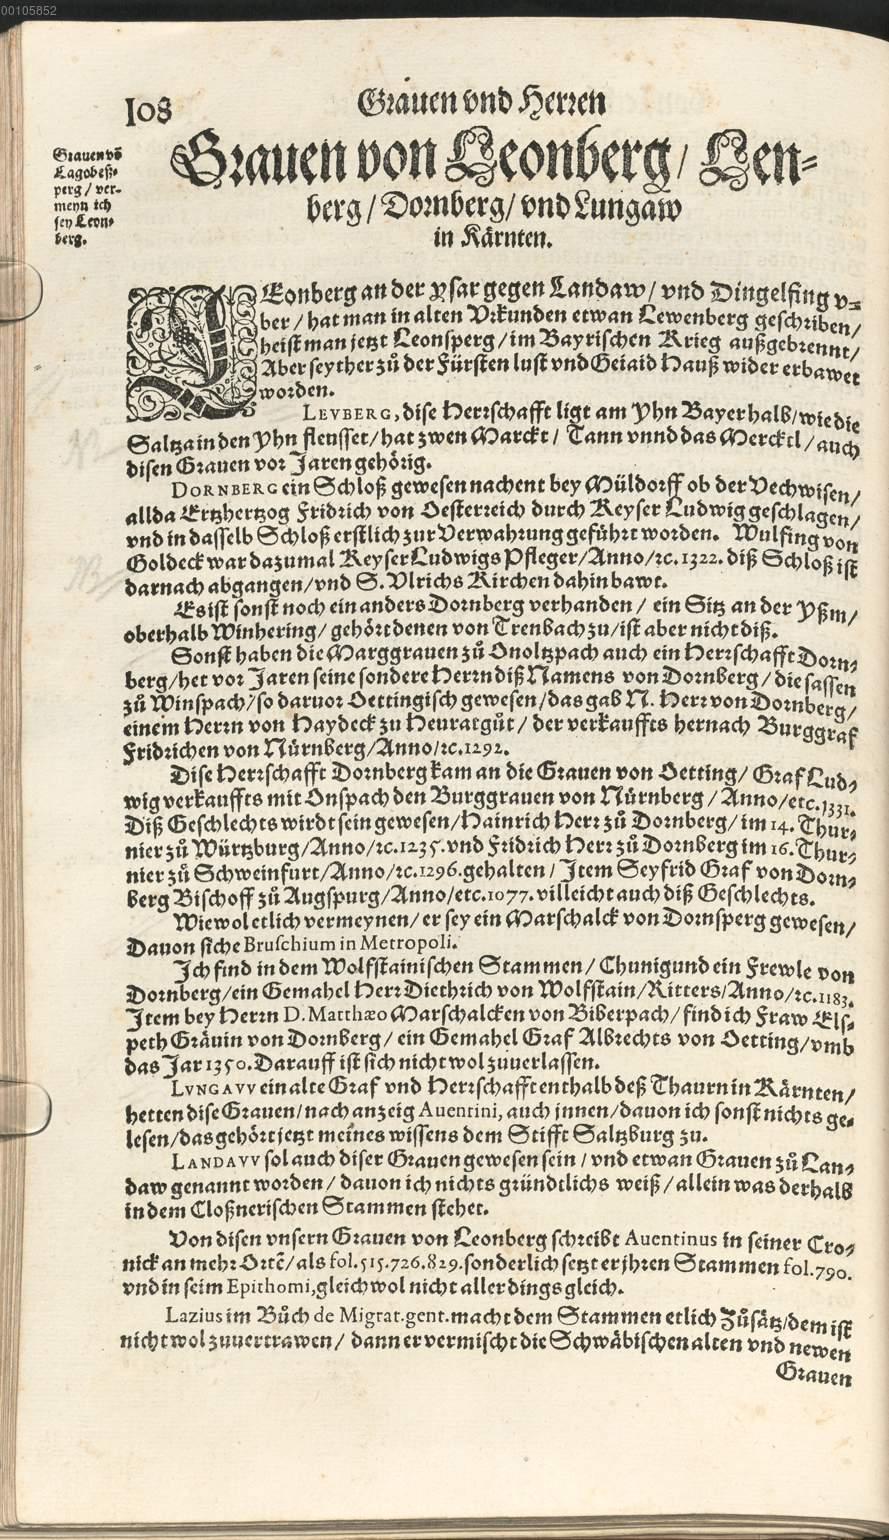 00105852
108
Grauen vnd Herren
Grauen võ
Lagobeß-
perg / ver-
meyn ich
sey Leon-
berg.
Grauen von Leonberg / Len-
berg / Dornberg / vnd Lungaw
in Kärnten.
LEonberg an der Ysar gegen Landaw / vnd Dingelfing v-
ber / hat man in alten Vrkunden etwan Lewenberg geschriben /
heist man jetzt Leonsperg / im Bayrischen Krieg außgebrennt /
Aber seyther zů der Fürsten lust vnd Geiaid Hauß wider erbawet
worden.
LEVBERG, dise Herrschafft ligt am Yhn Bayer halb / wie die
Saltza in den Yhn fleusset / hat zwen Marckt / Tann vnnd das Mercktl / auch
disen Grauen vor Jaren gehörig.
DORNBERG ein Schloß gewesen nachent bey Müldorff ob der Vechwisen /
allda Ertzhertzog Fridrich von Oesterreich durch Keyser Ludwig geschlagen /
vnd in dasselb Schloß erstlich zur Verwahrung geführt worden. Wulfing von
Goldeck war dazumal Keyser Ludwigs Pfleger / Anno / ꝛc. 1322. diß Schloß ist
darnach abgangen / vnd S. Vlrichs Kirchen dahin bawt.
Es ist sonst noch ein anders Dornberg verhanden / ein Sitz an der Yßm /
oberhalb Winhering / gehört denen von Trenbach zu / ist aber nicht diß.
Sonst haben die Marggrauen zů Onoltzpach auch ein Herrschafft Dorn-
berg / het vor Jaren seine sondere Herrn diß Namens von Dornberg / die sassen
zů Winspach / so daruor Oettingisch gewesen / das gab N. Herr von Dornberg /
einem Herrn von Haydeck zu Heuratgůt / der verkauffts hernach Burggraf
Fridrichen von Nürnberg / Anno / ꝛc. 1292.
Dise Herrschafft Dornberg kam an die Grauen von Oetting / Graf Lud-
wig verkauffts mit Onspach den Burggrauen von Nürnberg / Anno / etc. 1331.
Diß Geschlechts wirdt sein gewesen / Hainrich Herr zů Dornberg / im 14. Thur-
nier zů Würtzburg / Anno / ꝛc. 1235. vnd Fridrich Herr zů Dornberg im 16. Thur-
nier zů Schweinfurt / Anno / ꝛc. 1296. gehalten / Jtem Seyfrid Graf von Dorn-
berg Bischoff zů Augspurg / Anno / etc. 1077. villeicht auch diß Geschlechts.
Wiewol etlich vermeynen / er sey ein Marschalck von Dornsperg gewesen /
Dauon siche Bruschium in Metropoli.
Jch find in dem Wolfstainischen Stammen / Chunigund ein Frewle von
Dornberg / ein Gemahel Herr Diethrich von Wolfstain / Ritters / Anno / ꝛc. 1183.
Jtem bey Herrn D. Matthæo Marschalcken von Biberpach / find ich Fraw Els-
peth Gräuin von Dornberg / ein Gemahel Graf Albrechts von Oetting / vmb
das Jar 1350. Darauff ist sich nicht wol zuuerlassen.
LVNGAVV ein alte Graf vnd Herrschafft enthalb deß Thaurn in Kärnten /
hetten dise Grauen / nach anzeig Auentini, auch jnnen / dauon ich sonst nichts ge-
lesen / das gehört jetzt meines wissens dem Stifft Saltzburg zu.
LANDAVV sol auch diser Grauen gewesen sein / vnd etwan Grauen zů Lan-
daw genannt worden / dauon ich nichts gründtlichs weiß / allein was derhalb
in dem Cloßnerischen Stammen stehet.
Von disen vnsern Grauen von Leonberg schreibt Auentinus in seiner Cro-
nick an mehr Ortẽ / als fol. 515. 726. 829. sonderlich setzt er jhren Stammen fol. 790.
vnd in seim Epithomi, gleichwol nicht allerdings gleich.
Lazius im Bůch de Migrat. gent. macht dem Stammen etlich Zůsätz / dem ist
nicht wol zuuertrawen / dann er vermischt die Schwäbischen alten vnd newen
Grauen